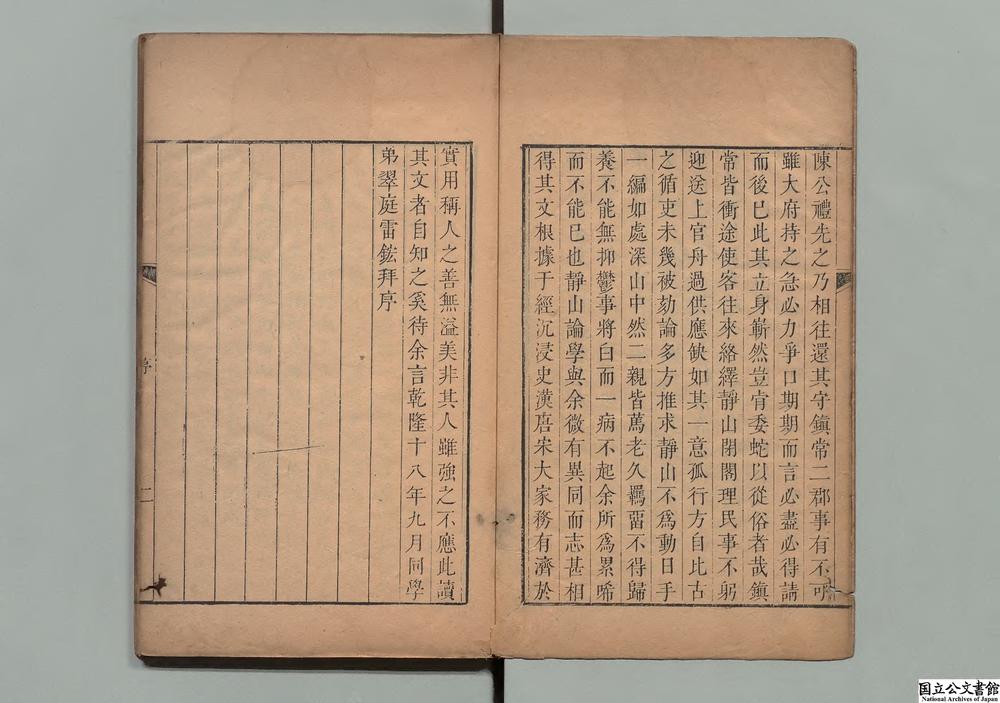 陳公禮先之乃相往還其守鎮常二郡事有不可
雖大府持之急必力爭口期期而言必盡必得請
而後已此其立身嶄然豈肯委蛇以從俗者哉鎮
常皆衝途使客往來絡繹靜山閉閣理民事不躬
迎送上官舟過供應缺如其一意孤行方自比古
之循吏未幾被劾論多方推求靜山不爲動日手
一編如處深山中然二親皆篤老久羈畱不得歸
養不能無抑鬱事將白而一病不起余所爲累唏
而不能已也靜山論學與余微有異同而志甚相
得其文根據于經沉浸史漢唐宋大家務有濟於
實用稱人之善無溢美非其人雖強之不應此讀
其文者自知之奚待余言乾隆十八年九月同學
弟翠庭雷鋐拜序
序
二
国立公文書館
National Archives of Japan